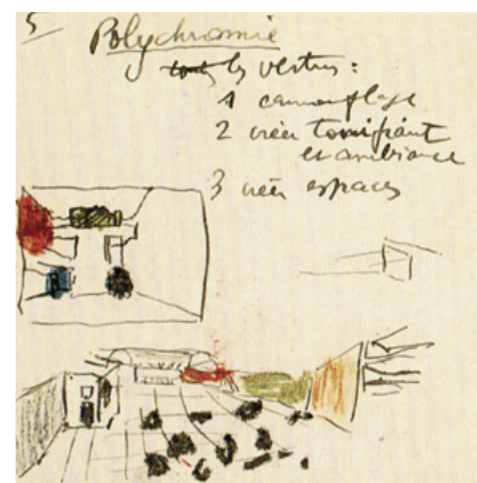 5 Polychromie
toutes les vertus :
1 camouflage
2 créer tonifiant
et ambiance
3 créer espaces